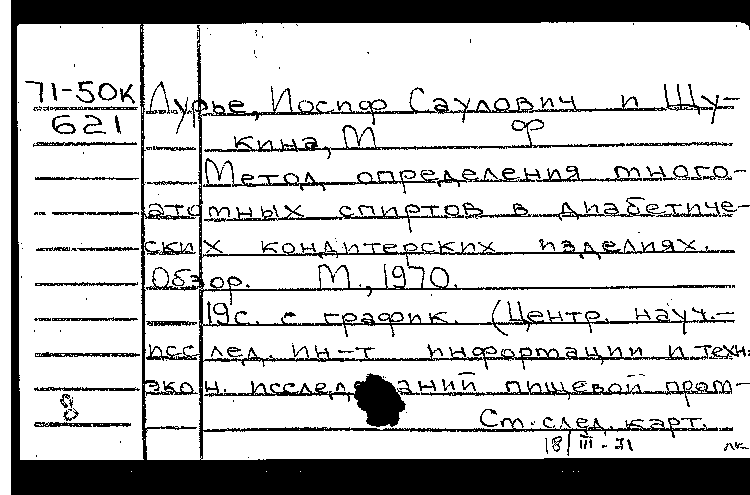 71-50к Лурье, Иосиф Саулович и Щу-
621 кина, М Ф
Метод определения много-
атомных спиртов в диабетиче-
ских кондитерских изделиях.
Обзор. М., 1970.
19с. с график. (Центр. науч.-
исслед. ин-т информации и техн.
экон. исследований пищевой пром-
8 Ст. след. карт.
18/III-71 лк